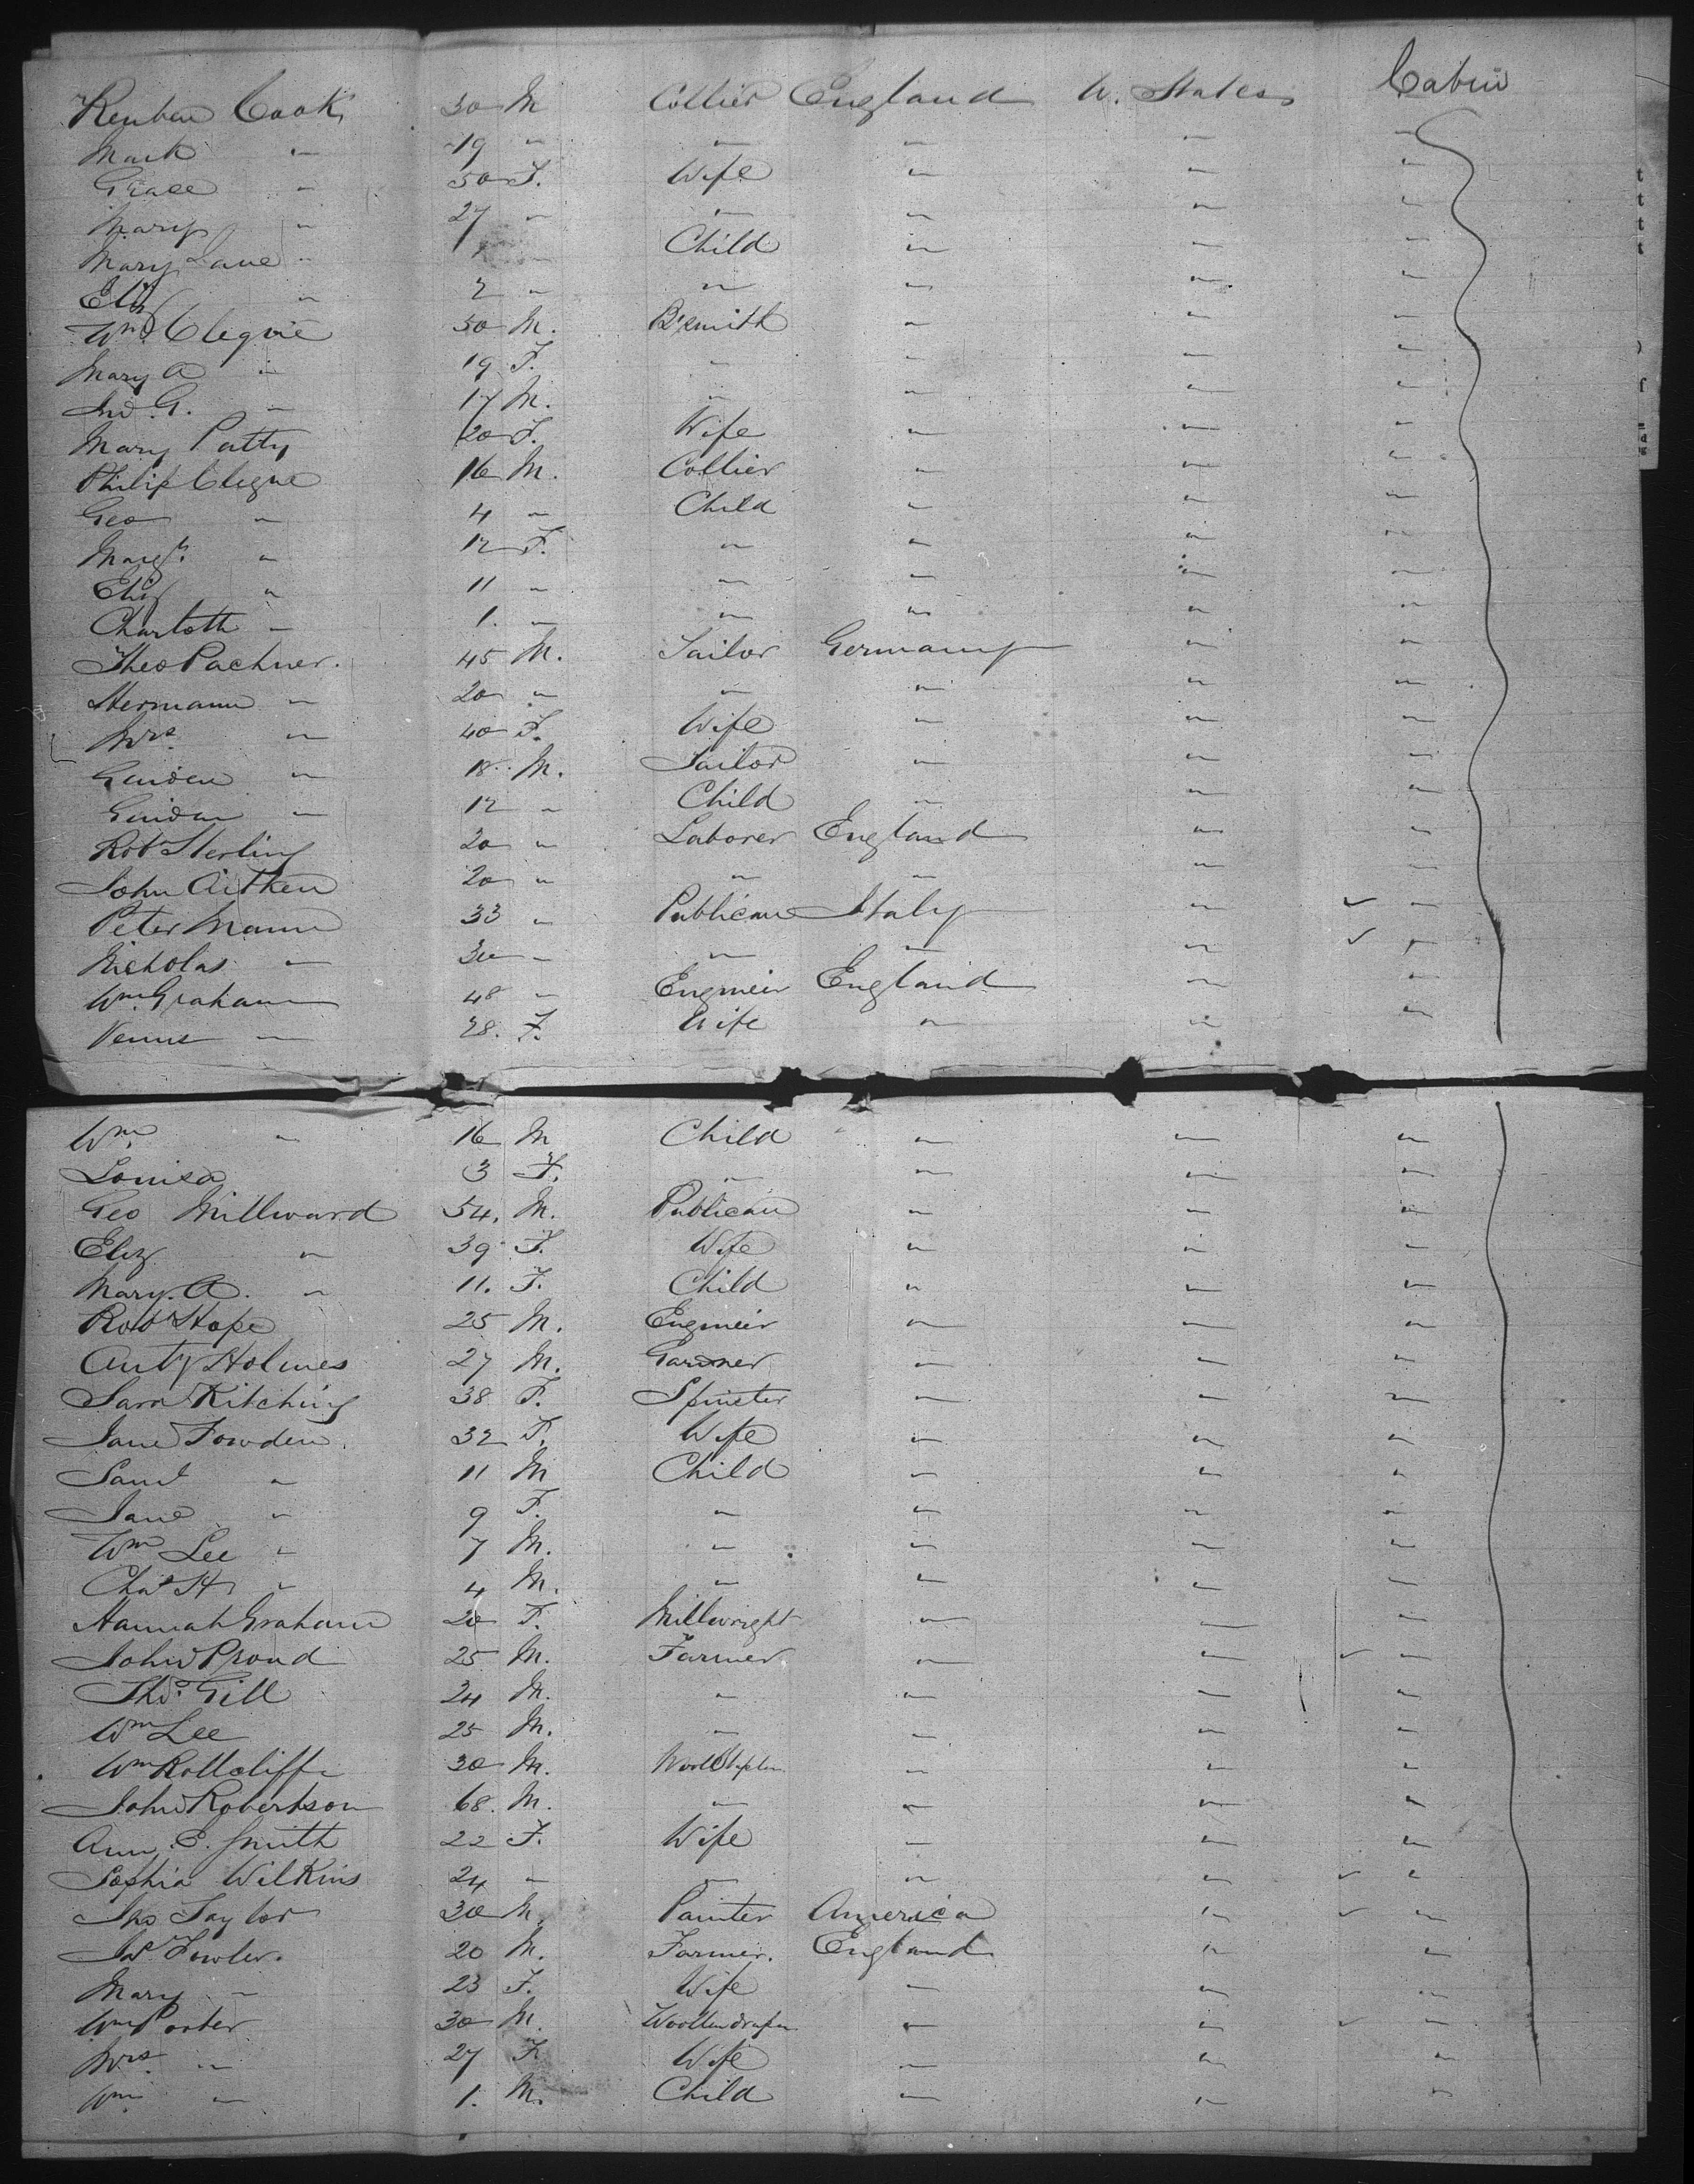 Reuben Cook 30 M Collier England U. States Cabin
Mark " 19 " " " " "
Grace " 50 F. Wife " " "
Mary " 27 " " " " "
Mary Jane " 1 " Child " " "
Eliz " 2 " " " " "
Wm. Clegue 50 M. B'smith " " "
Mary A " 19 F. " " " "
Jno. G. " 17 M. " " " "
Mary Patty 20 F. Wife " " "
Philip Clegue 16 M. Collier " " "
Geo " 4 " Child " " "
Margt. " 12 F. " " " "
Eliz " 11 " " " " "
Charloth " 1. " " " " "
Theo Pachner. 45 M. Tailor Germany " "
Hermann " 20 " " " " "
Mrs. " 40 F. Wife " " "
" 18. M. Tailor " " "
" 12 " Child " " "
Robt Sterling 20 " Laborer England " "
John Aitken 20 " " " " "
Peter Mann 33 " Publican Italy " "
Nicholas " 30 " " " " "
Wm. Graham 48 " Engineir England " "
Venus " 28. F. Wife " " "
Wm. " 16 M Child " " "
Louisa 3 F. " " " "
Geo Millward 54. M. Publican " " "
Eliz " 39 F. Wife " " "
Mary. A. " 11. F. Child " " "
Robt Hope 25 M. Engineir " " "
Anty Holmes 27 M. Gardner " " "
Sara Kitching 38 F. Spinster " " "
Jane Fowden. 32 F. Wife " " "
Saml " 11 M Child " " "
Jane " 9 F. " " " "
Wm Lee " 7 M. " " " "
Chas H " 4 M. " " " "
Hannah Graham 20 F. Millwright " " "
John Proud 25 M. Farmer " " "
Tho. Gill 24 M. " " " "
Wm Lee 25 M. " " " "
Wm 30 M. " " "
John Robertson 68. M. " " " "
Ann. E. Smith 22 F. Wife " " "
Sophia Wilkins 24 " " " " "
Jno Taylor 30 M. Painter America " "
Js. Fowler. 20 M. Farmer. England " "
Mary " 23 F. Wife " " "
Wm Porter 30 M. Woollendraper " " "
Mrs. " 27 F. Wife " " "
Wm. " 1. M. Child " " "